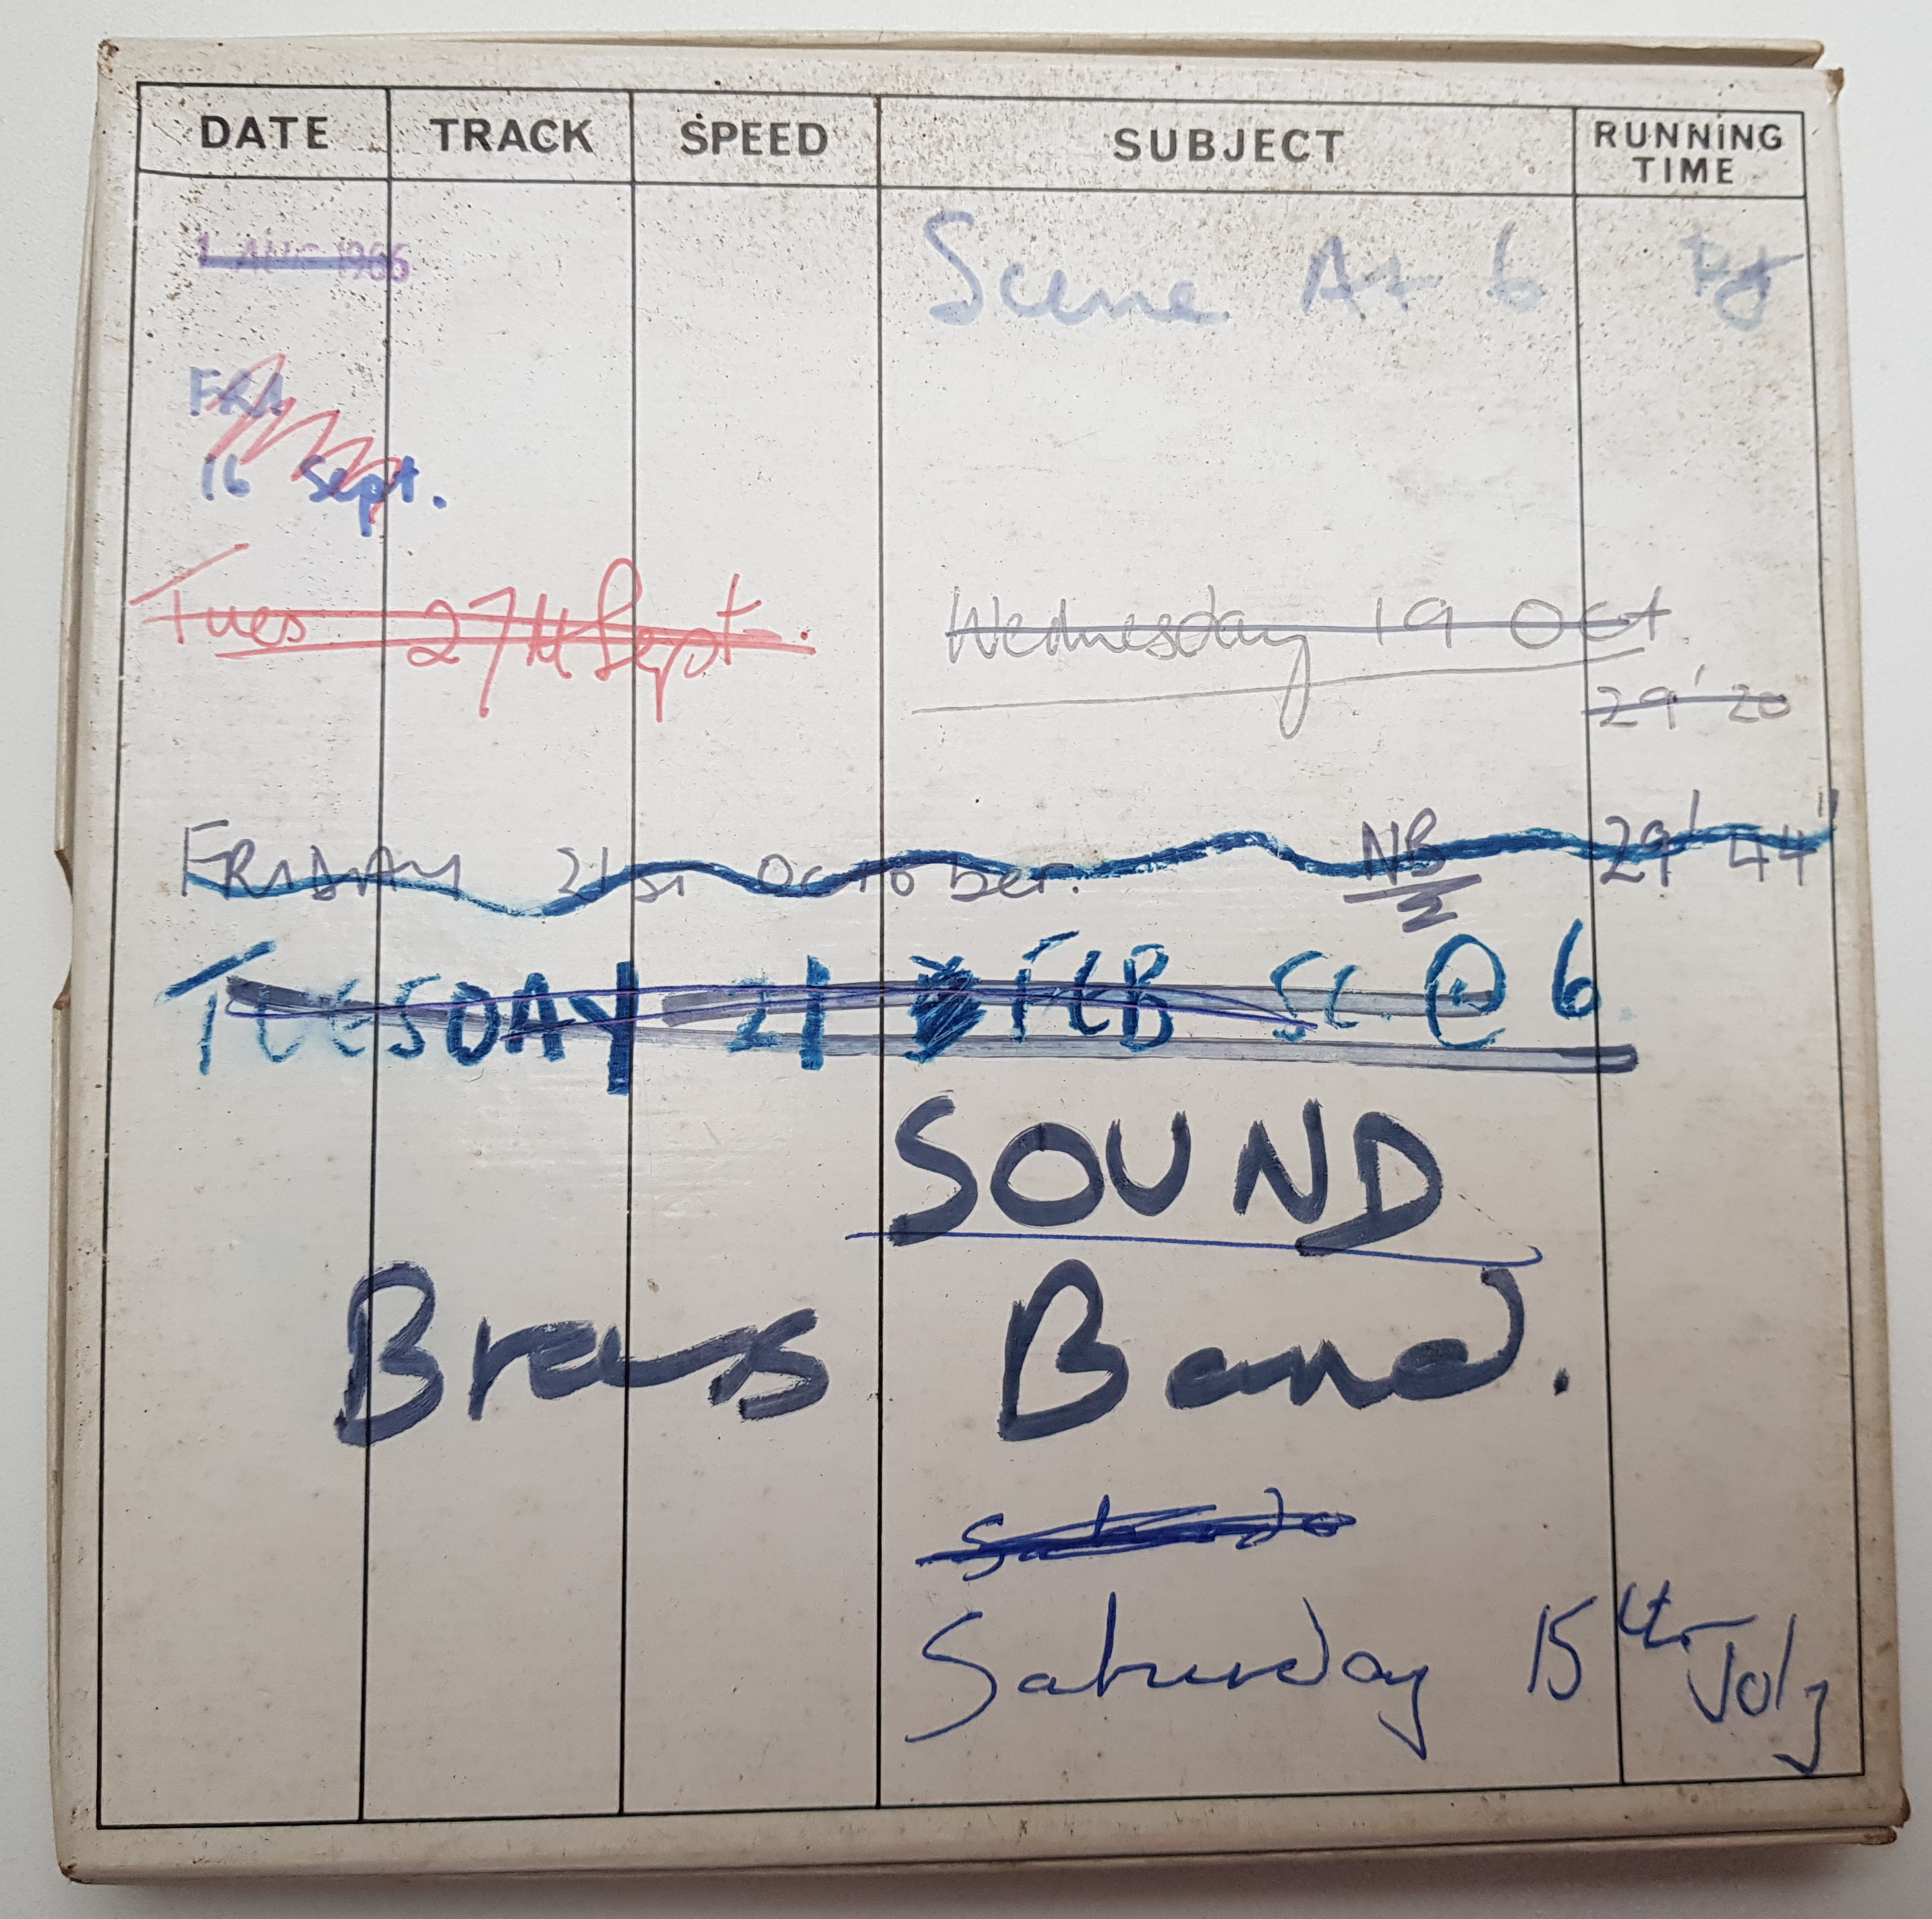 DATE TRACK SPEED SUBJECT RUNNING TIME
1 AUG 1966 Scene At 6
FRI
16 Sept.
Tues 27th Sept. Wednesday 19 Oct
29' 20"
FRIDAY 21st October. NB 29' 44"
TUESDAY 21 FEB SC. @ 6
SOUND
Brass Band.
Saturday 15th July